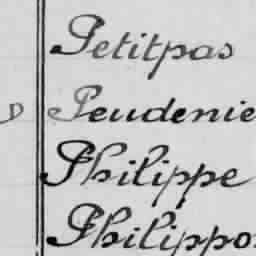 Petitpas
Peudenie
Philippe
Philippo